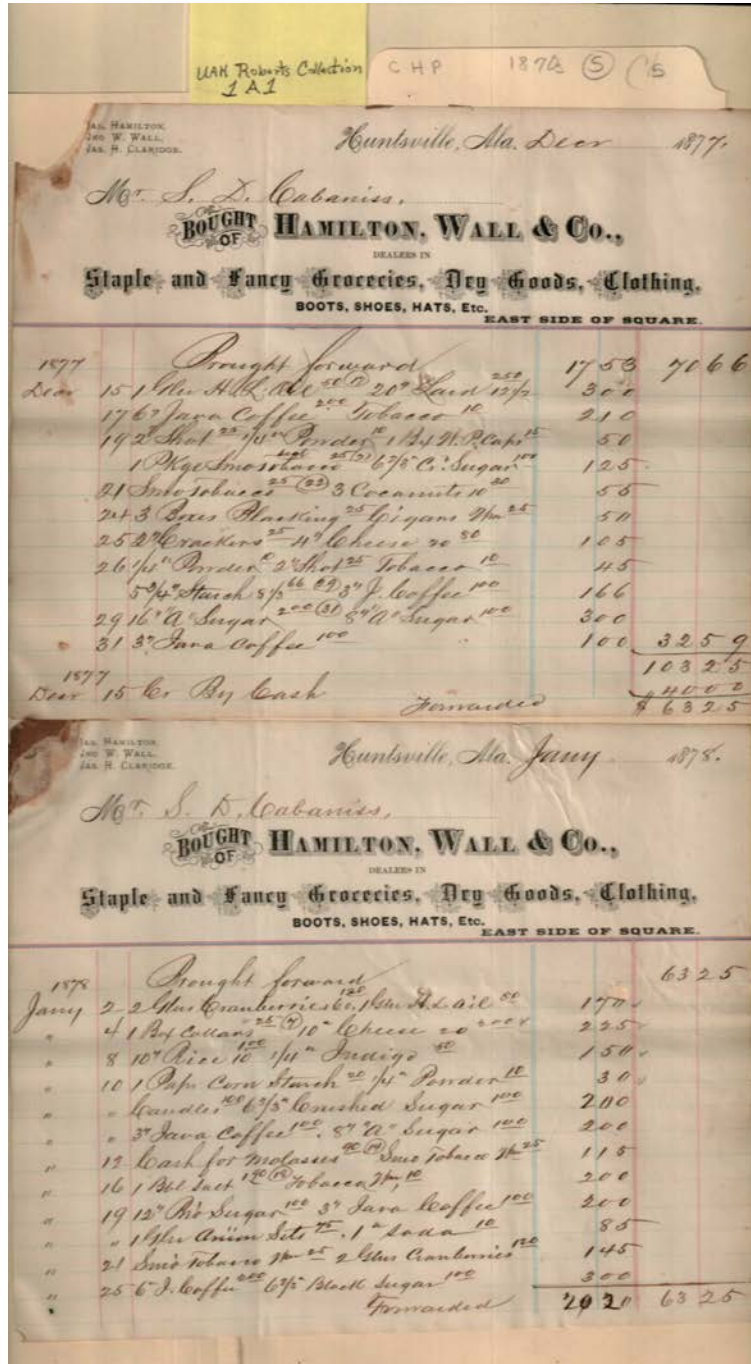 UAH Roberts Collection
1A1
CHP 187 5 (5
JAS. HAMILTON.
JNO W. WALL.
JAS. H. CLARIDGE.
Huntsville, Ala. Decr 1877.
Mr. S. D. Cabaniss.
BOUGHT OF HAMILTON, WALL & CO.,
DEALERS IN
Staple and Fancy Groceries, Dry Goods, Clothing,
BOOTS, SHOES, HATS, Etc.
EAST SIDE OF SQUARE.
1877 Brought forward 17 53 70 66
Decr 15 1 Glu H. L. Oil 50 20" Lard 12 1/2 250 300
17 6" Java Coffee 200 Tobacco 10 210
19 2" Shot 25 1/4" Powder 10 1 Bx W. P. Caps 15 50
1 Pkge Smo Tobacco 25 (21) 6 2/3 Cr. Sugar 100 125
21 Smo Tobacco 25 (22) 3 Cocoanuts 10 30 55
24 3 Boxes Blacking 25 Cigars 25 50
25 2" Crackers 25 4" Cheese 20 80 105
26 1/4" Powder 10 2" Shot 25 Tobacco 10 45
Starch 8 1/3 66 (29) 3" J. Coffee 100 166
29 16" "A" Sugar 200 (31) 8" "A" Sugar 100 300
31 3" Java Coffee 100 100 32 59
103 25
1877
Decr 15 Cr By Cash 40 00
Forwarded $ 63 25
JAS. HAMILTON.
JNO W. WALL.
JAS. H. CLARIDGE.
Huntsville, Ala. Jany 1878.
Mr. S. D. Cabaniss,
BOUGHT OF HAMILTON, WALL & CO.,
DEALERS IN
Staple and Fancy Groceries, Dry Goods, Clothing,
BOOTS, SHOES, HATS, Etc.
EAST SIDE OF SQUARE.
1878 Brought forward 63 25
Jany 2 2 Glus Cranberries 60 120 1 Glu H. L. Oil 50 170
" 4 1 Bx Collars 25 10" Cheese 20 200 225
" 8 10" Rice 10 100 1/4" Indigo 50 150
" 10 1 Papr Corn Starch 20 1/4" Powder 10 30
" " Candles 100 6 2/3" Crushed Sugar 100 200
" " 3" Java Coffee 100 8" "A" Sugar 100 200
" 12 Cash for Molasses 90 (14) Smo Tobacco 25 115
" 16 1 Bbl Salt 190 Tobacco 10 200
" 19 12" Bro Sugar 100 3" Java Coffee 100 200
" " 1 Glu Onion Sets 75 1" Soda 10 85
" 21 Smo Tobacco 25 2 Glus Cranberries 120 145
" 25 6" J. Coffee 200 6 2/3 Sugar 100 300
" Forwarded 20 20 63 25